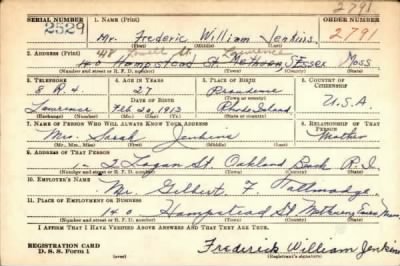 2791
SERIAL NUMBER 1. NAME (Print) ORDER NUMBER
2529 Mr. Frederic William Jenkins 2791
(First) (Middle) (Last)
2. ADDRESS (Print) 48 Lowell St. Lawrence
140 Hampstead St. Methuen, Essex Mass
(Number and street or R. F. D. number) (Town) (County) (State)
3. TELEPHONE 4. AGE IN YEARS 5. PLACE OF BIRTH 6. COUNTRY OF CITIZENSHIP
27 Providence
DATE OF BIRTH (Town or county)
Lawrence Feb. 20, 1913 Rhode Island U.S.A.
(Exchange) (Number) (Mo.) (Day) (Yr.) (State or country)
7. NAME OF PERSON WHO WILL ALWAYS KNOW YOUR ADDRESS 8. RELATIONSHIP OF THAT PERSON
Mrs. Sarah Jenkins Mother
(Mr., Mrs., Miss) (First) (Middle) (Last)
9. ADDRESS OF THAT PERSON
2 Logan St. Oakland Beach R.I.
(Number and street or R. F. D. number) (Town) (County) (State)
10. EMPLOYER'S NAME
Mr. Gilbert F.
11. PLACE OF EMPLOYMENT OR BUSINESS
140 Hampstead St. Methuen, Essex Mass.
(Number and street or R. F. D. number) (Town) (County) (State)
I AFFIRM THAT I HAVE VERIFIED ABOVE ANSWERS AND THAT THEY ARE TRUE.
REGISTRATION CARD
D. S. S. Form 1 Frederick William Jenkins
(Registrant's signature)